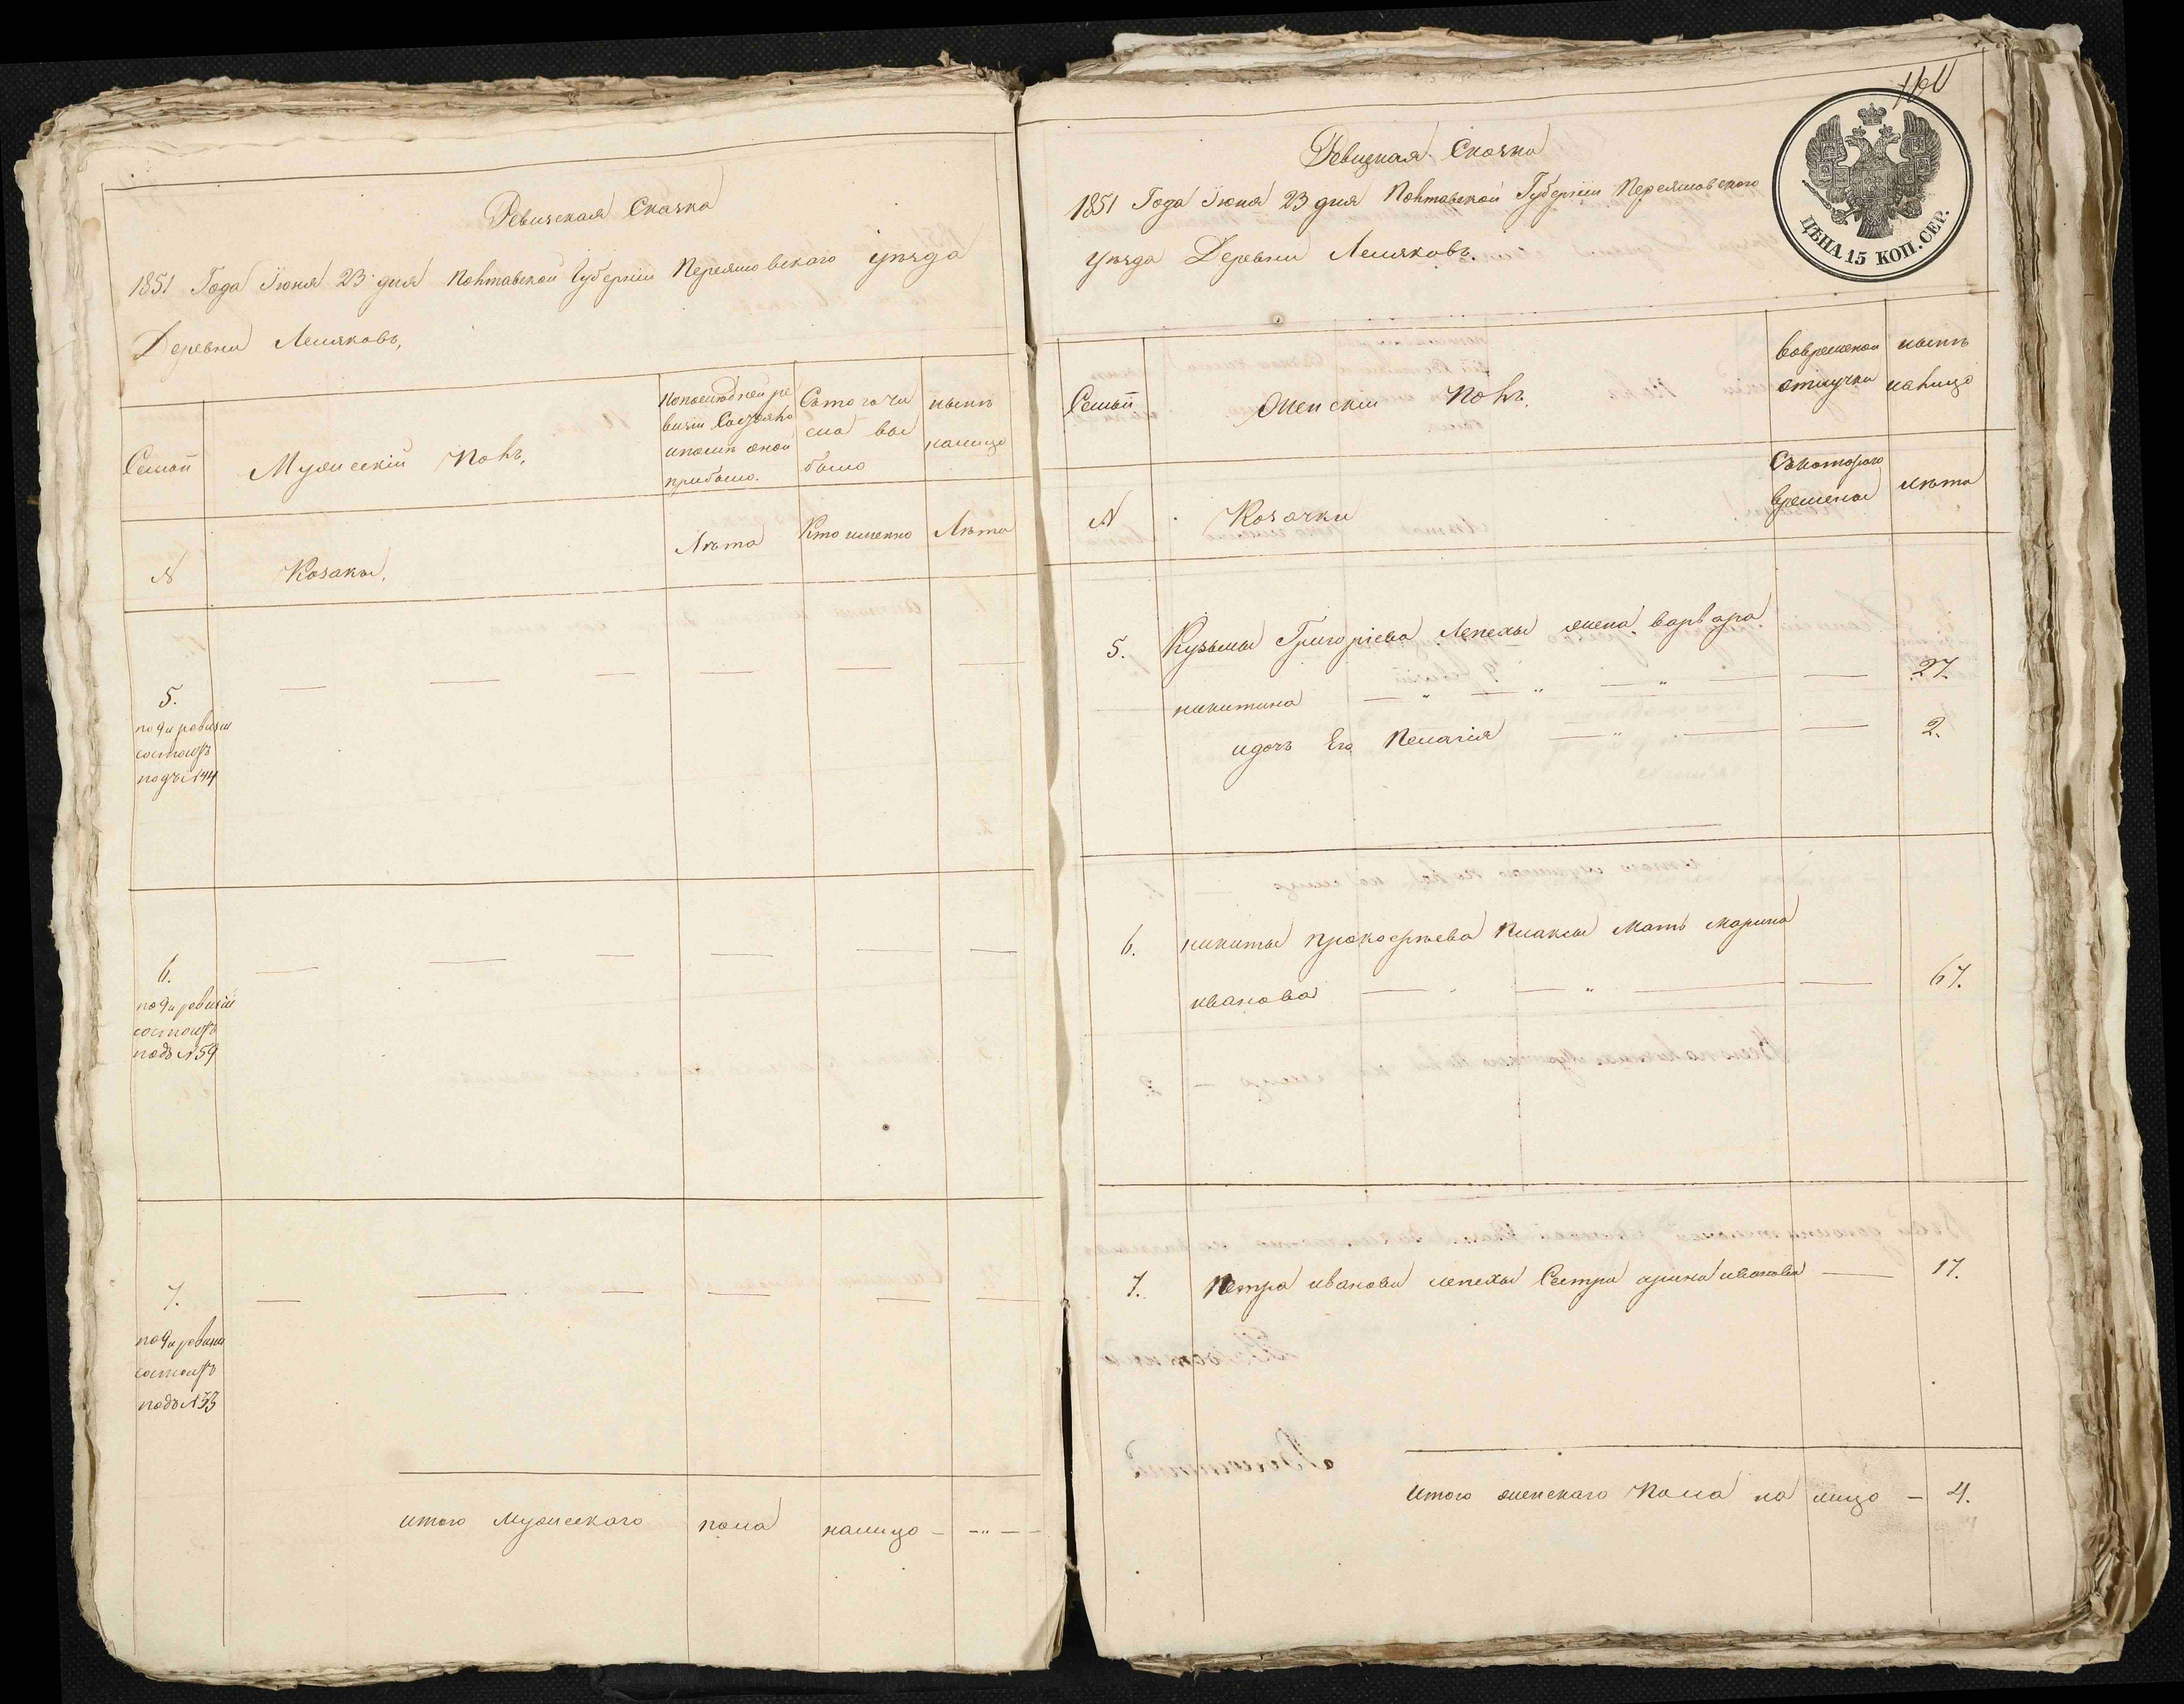 Ревизская Сказка
1851 Года Июня 23 дня Полтавской Губерніи Переяловского уѣзда
Деревни Лемяковъ,
Семьи
Мужескій Полъ,
По последней ре
визіи Состояло
ипослѣ оной
прибыло.
Сътого чи
сла вы
было
нынѣ
налицо
N
Козаки,
Лѣта
Кто именно
Лѣта
5.
по 9й ревизіи
состоитъ
подъ N144
6.
по 9й ревизіи
состоитъ
подъ N59
7.
по 9й ревизіи
состоитъ
подъ N33
итого Мужеского пола налицо — — „ —
160
ЦѢНА 15 КОП. СЕР.
Ревизская Сказка
1851 Года Июня 23 дня Полтавской Губерніи Переяловского
уѣзда Деревни Лемяковъ,
Семьи
Женскій Полъ,
вовременой
отлучки
нынѣ
налицо
N
Козачки
Съкоторого
времени
лѣта
5. Кузьмы Григоріева Лепехи жена варвара
никитина — „ — „ — „ — — 27.
идочь Его Пелагія — „ — — 2.
6. никиты прокофіева Плаксы Мать Марина
иванова — „ — „ — — 67.
7. Петра иванова лепехи Сестра арина иванова — 17.
Итого женскаго Пола на лицо — 4.